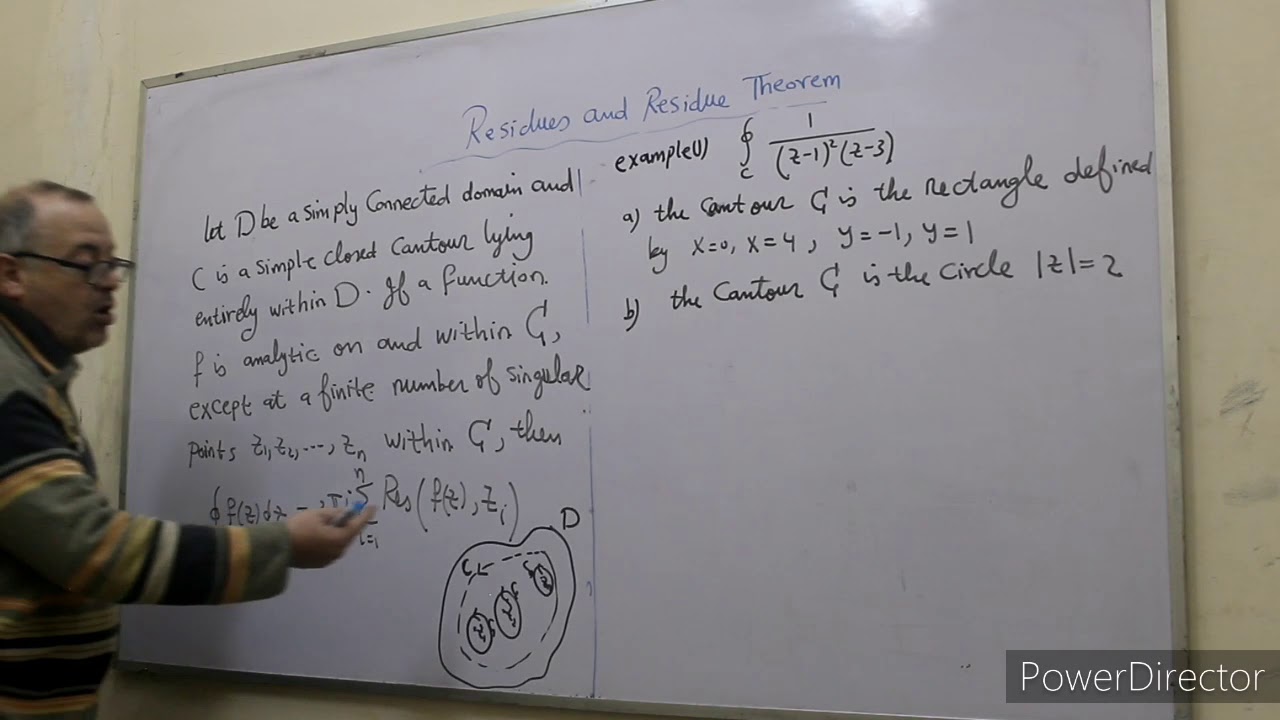 Residues and Residue Theorem
let D be a simply Connected domain and
C is a simple closed Cantour lying
entirely within D. If a function.
f is analytic on and within C,
except at a finite number of singular
points z₁, z₂, ..., zₙ within C, then
∮ f(z) dz = 2πi n Σ i=1 Res(f(z), zᵢ)
D
C
example(1) ∮c 1/((z-1)²(z-3))
a) the Cantour C is the rectangle defined
by x=0, x=4, y=-1, y=1
b) the Cantour C is the Circle |z|=2
PowerDirector